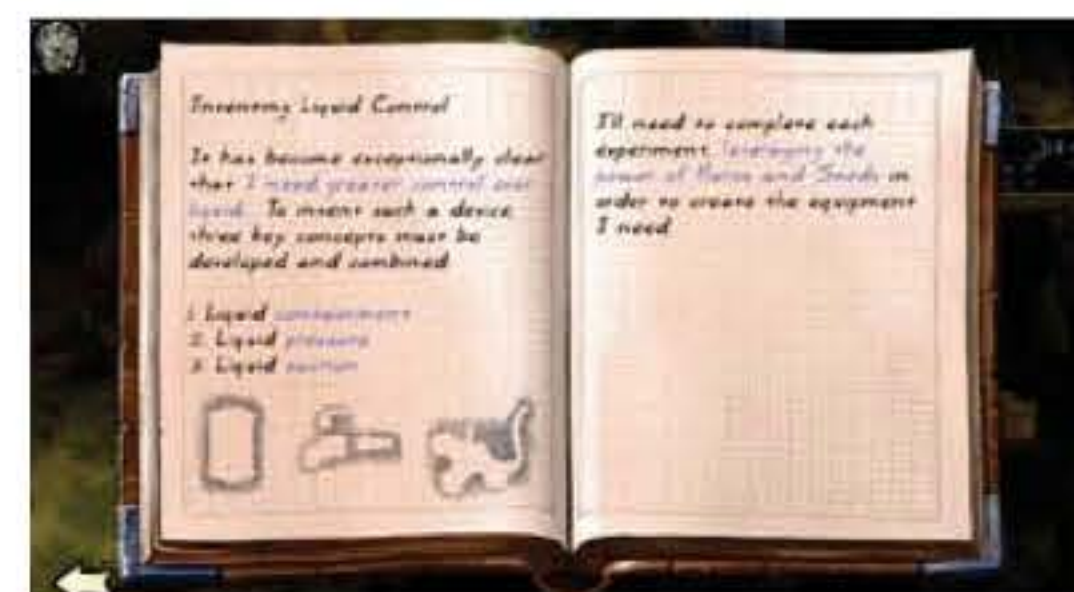 Inventing Liquid Control
It has become exceptionally clear
that I need greater control over
liquid. To invent such a device,
three key concepts must be
developed and combined
1. Liquid containment
2. Liquid pressure
3. Liquid suction
I'll need to complete each
experiment leveraging the
power of and in
order to create the equipment
I need